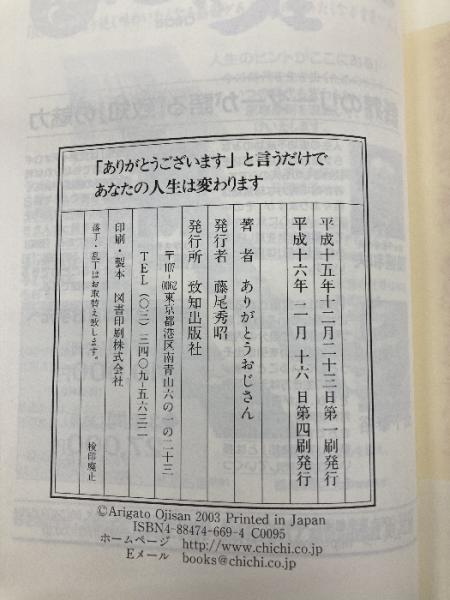 「ありがとうございます」と言うだけで
あなたの人生は変わります
平成十五年十二月二十三日第一刷発行
平成十六年 二月 十六 日第四刷発行
著者 ありがとうおじさん
発行者 藤尾秀昭
発行所 致知出版社
〒107-0062東京都港区南青山六の一の二十三
TEL(〇三)三四〇九―五六三二
印刷・製本 図書印刷株式会社
落丁・乱丁はお取替え致します。
検印廃止
©Arigato Ojisan 2003 Printed in Japan
ISBN4-88474-669-4 C0095
ホームページ http://www.chichi.co.jp
Eメール books@chichi.co.jp